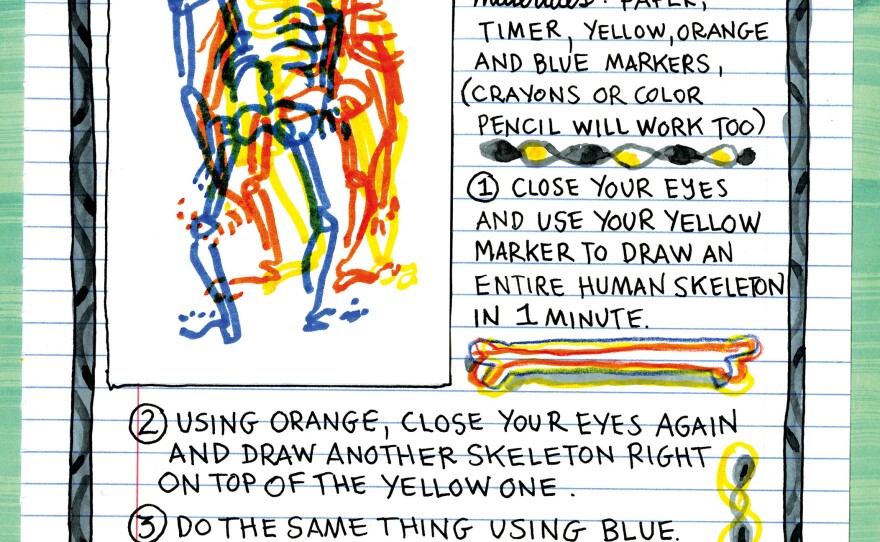 materials: PAPER,
TIMER, YELLOW, ORANGE
AND BLUE MARKERS,
(CRAYONS OR COLOR
PENCIL WILL WORK TOO)
① CLOSE YOUR EYES
AND USE YOUR YELLOW
MARKER TO DRAW AN
ENTIRE HUMAN SKELETON
IN 1 MINUTE.
② USING ORANGE, CLOSE YOUR EYES AGAIN
AND DRAW ANOTHER SKELETON RIGHT
ON TOP OF THE YELLOW ONE.
③ DO THE SAME THING USING BLUE.